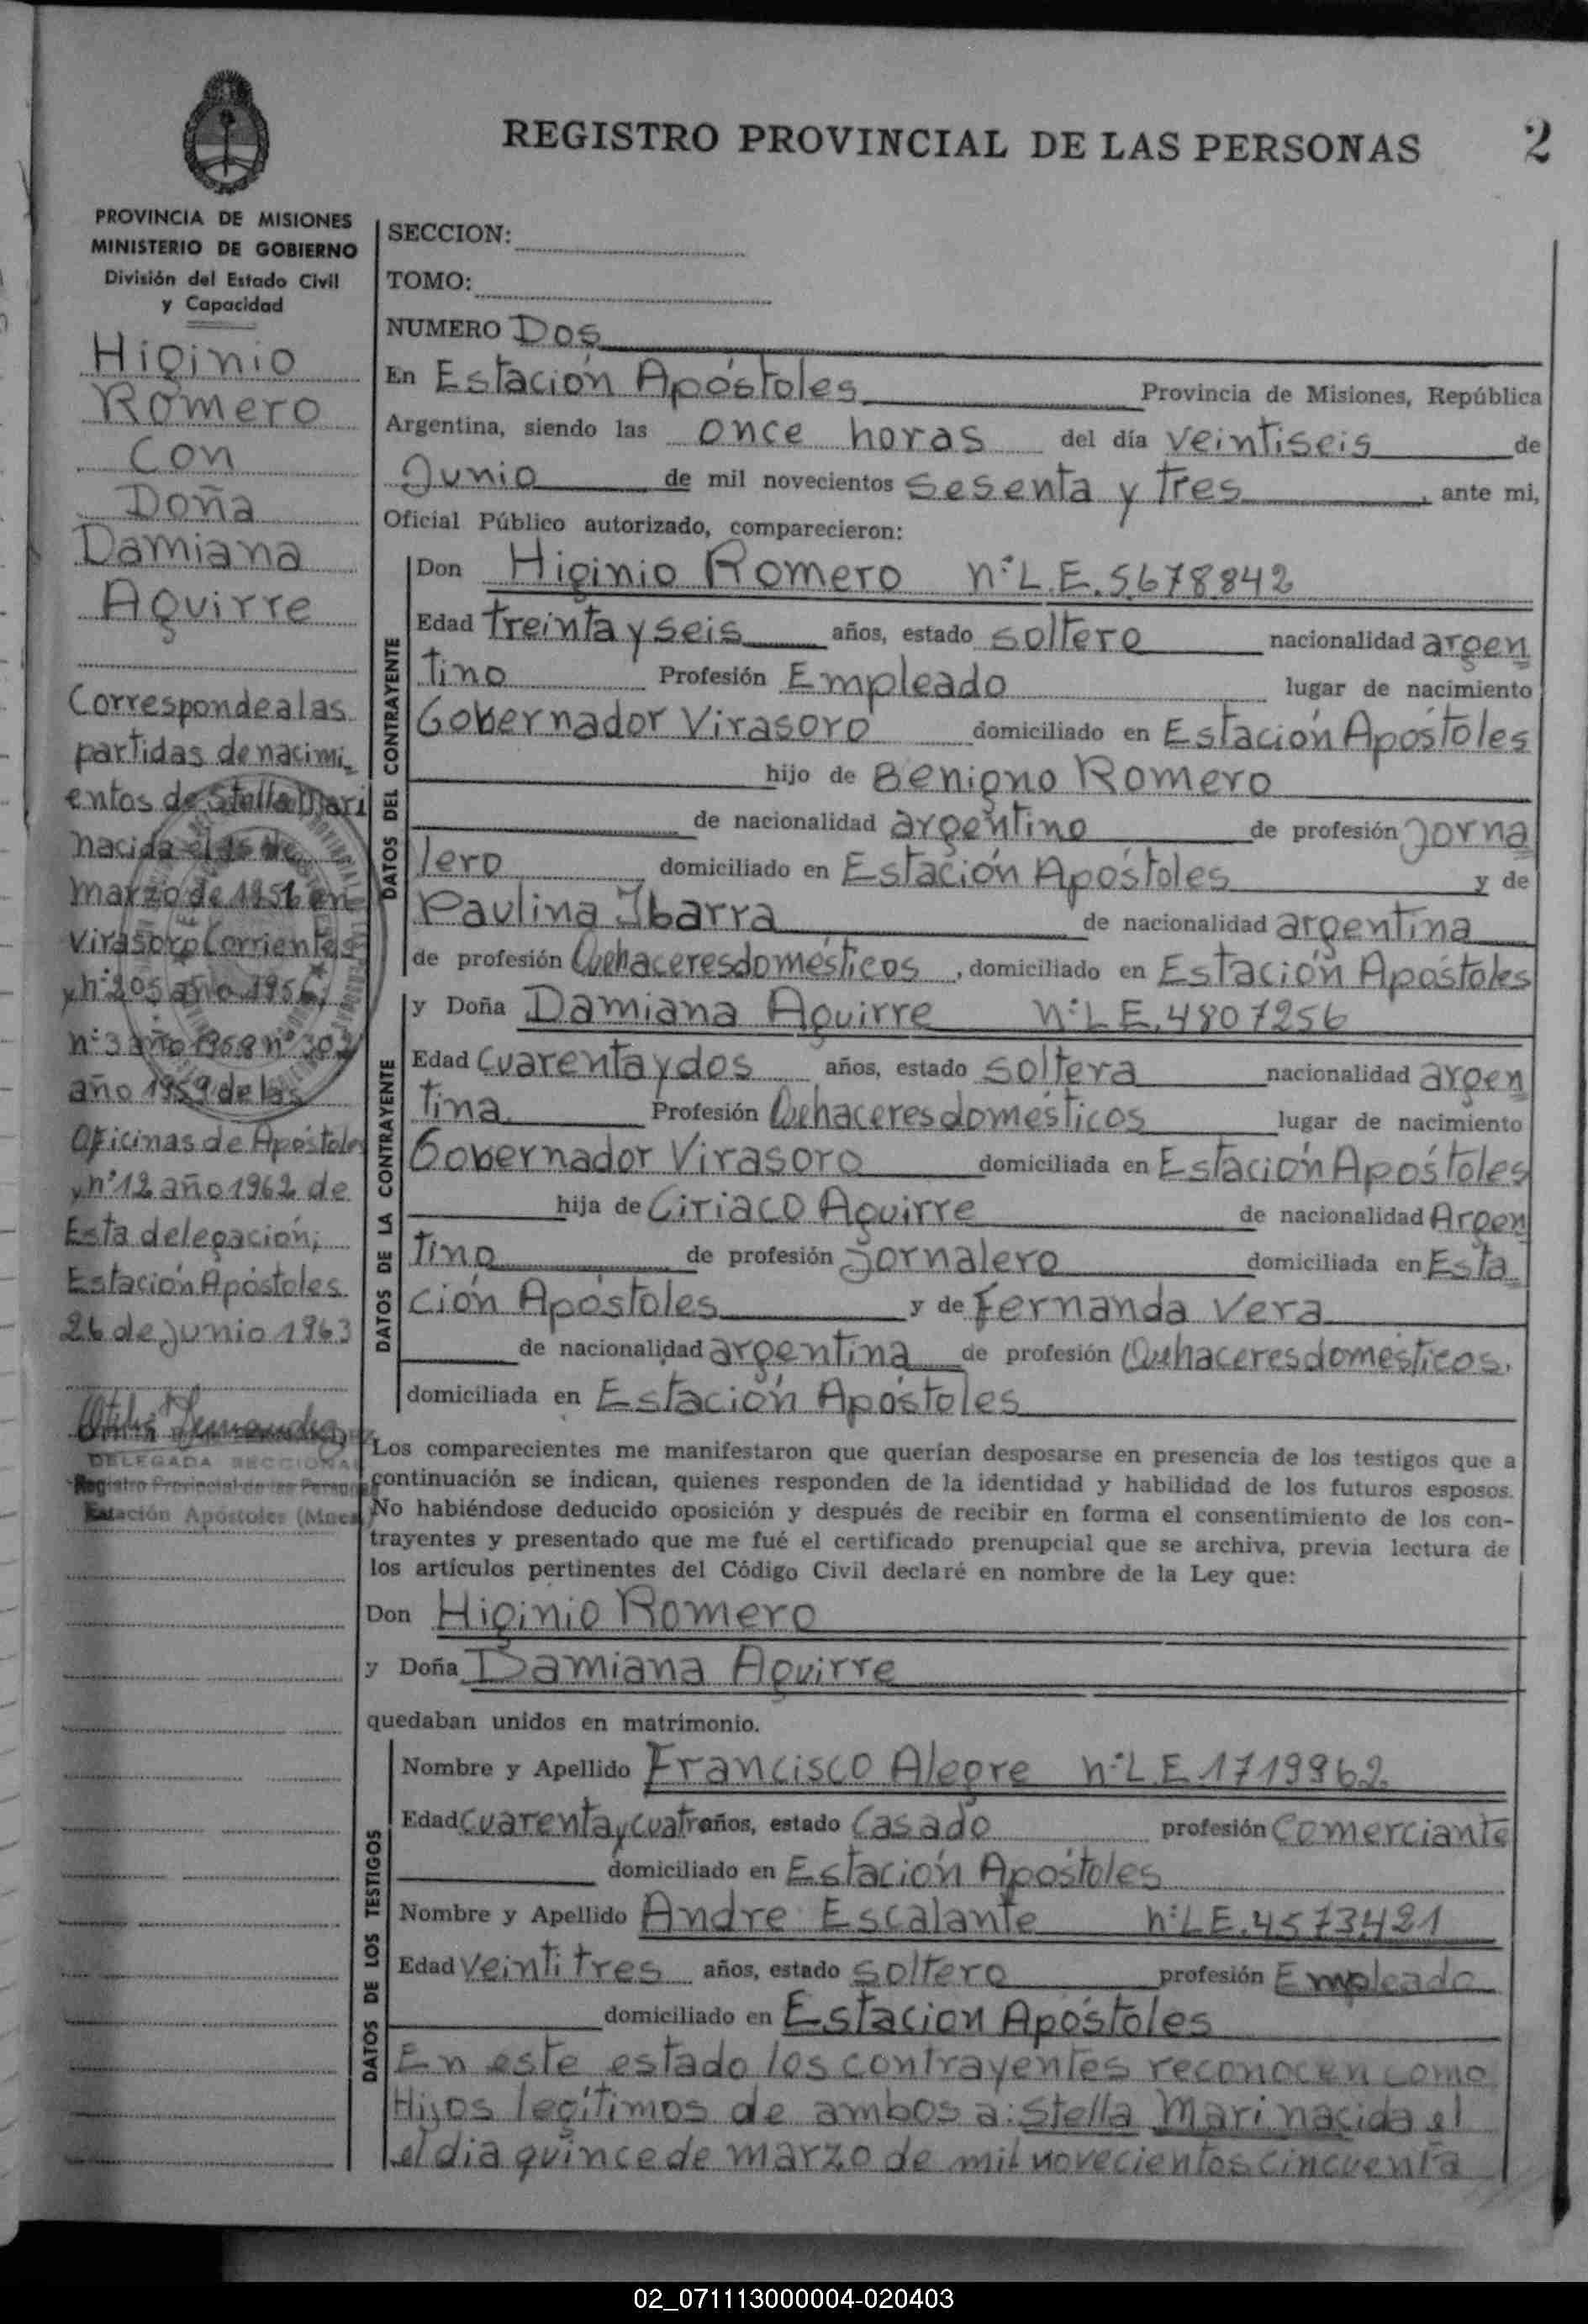 REGISTRO PROVINCIAL DE LAS PERSONAS
2
PROVINCIA DE MISIONES
MINISTERIO DE GOBIERNO
División del Estado Civil
y Capacidad
Higinio
Romero
Con
Doña
Damiana
Aguirre
Corresponde a las
partidas de nacimi_
entos de Stella Mari
nacida el 15 de
marzo de 1956 en
Virasoro Corrientes
y nº 205 año 1956;
nº 3 año 1958 nº 302
año 1959 de las
Oficinas de Apóstoles
y nº 12 año 1962 de
Esta delegación;
Estación Apóstoles
26 de junio 1963
DELEGADA SECCIONAL
Registro Provincial de las Personas
Estación Apóstoles (Mnes
SECCION:
TOMO:
NUMERO Dos
En Estación Apóstoles Provincia de Misiones, República
Argentina, siendo las once horas del día veintiseis de
Junio de mil novecientos sesenta y tres, ante mi,
Oficial Público autorizado, comparecieron:
DATOS DEL CONTRAYENTE
Don Higinio Romero nº L.E. 5.678842
Edad treinta y seis años, estado soltero nacionalidad argen
tino Profesión Empleado lugar de nacimiento
Gobernador Virasoro domiciliado en Estación Apóstoles
hijo de Benigno Romero
de nacionalidad argentino de profesión Jorna
lero domiciliado en Estación Apóstoles y de
Paulina Ibarra de nacionalidad argentina
de profesión Quehaceres domésticos, domiciliado en Estación Apóstoles
DATOS DE LA CONTRAYENTE
y Doña Damiana Aguirre nº L E. 4807256
Edad Cuarenta y dos años, estado soltera nacionalidad argen
tina Profesión Quehaceres domésticos lugar de nacimiento
Gobernador Virasoro domiciliada en Estación Apóstoles
hija de Ciriaco Aguirre de nacionalidad Argen
tino de profesión jornalero domiciliada en Esta
ción Apóstoles y de Fernanda Vera
de nacionalidad argentina de profesión Quehaceres domésticos,
domiciliada en Estación Apóstoles
Los comparecientes me manifestaron que querían desposarse en presencia de los testigos que a
continuación se indican, quienes responden de la identidad y habilidad de los futuros esposos.
No habiéndose deducido oposición y después de recibir en forma el consentimiento de los con-
trayentes y presentado que me fué el certificado prenupcial que se archiva, previa lectura de
los artículos pertinentes del Código Civil declaré en nombre de la Ley que:
Don Higinio Romero
y Doña Damiana Aguirre
quedaban unidos en matrimonio.
DATOS DE LOS TESTIGOS
Nombre y Apellido Francisco Alegre nº L.E 1719962
Edad Cuarenta y cuatro años, estado Casado profesión Comerciante
domiciliado en Estación Apóstoles
Nombre y Apellido Andre Escalante nº L E. 4573421
Edad veintitres años, estado soltero profesión Empleado
domiciliado en Estacion Apóstoles
En este estado los contrayentes reconocen como
Hijos legítimos de ambos a: Stella Mari nacida el
el dia quince de marzo de mil novecientos cincuenta
02_071113000004-020403